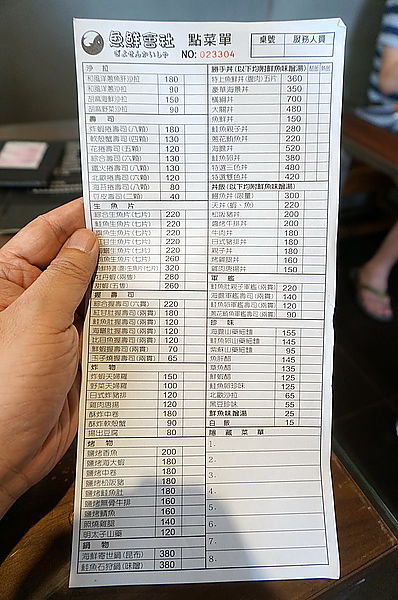 魚鮮會社 點菜單
ぎょせんかいしゃ NO:023304
桌號 服務人員
沙拉
和風洋蔥魚肝沙拉 180
和風洋蔥沙拉 90
胡麻海鮮沙拉 150
胡麻野菜沙拉 90
壽司
炸蝦捲壽司(八顆) 180
軟殼蟹壽司(四顆) 130
花捲壽司(五顆) 120
綜合壽司(六顆) 130
鐵火捲壽司(六顆) 130
北歐捲壽司(六顆) 120
海苔捲壽司(八顆) 80
豆皮壽司(二顆) 40
生魚片
綜合生魚片(七片) 220
鮭魚生魚片(七片) 220
220
220
220
320
牡丹蝦(兩隻) 260
甜蝦(五隻) 260
握壽司
綜合握壽司(六貫) 220
紅甘魽握壽司(兩貫) 120
鮭魚肚握壽司(兩貫) 120
海鱺肚握壽司(兩貫) 120
比目魚握壽司(兩貫) 120
鮮魚蝦握壽司(兩貫) 70
玉子燒握壽司(兩貫) 65
炸物
炸蝦天婦羅 150
野菜天婦羅 100
日式炸豬排 120
雞肉唐揚 120
酥炸中卷 180
酥炸軟殼蟹 90
揚出豆腐 80
烤物
鹽烤香魚 200
鹽烤海大蝦 180
鹽烤中卷 180
鹽烤松阪豬 180
鹽烤鮭魚肚 160
鹽烤無骨牛排 160
鹽烤鯖魚 160
照燒雞腿 140
明太子山藥 120
鍋物
海鮮寄世鍋(昆布) 380
鮭魚石狩鍋(味噌) 380
勝手丼(以下均附鮮魚味噌湯)
特上魚鮮丼(握肉)五片 360
豪華海景丼 350
橫綱丼 700
大關丼 480
魚鮮丼 150
鮭魚親子丼 280
蔥花鮪魚丼 220
海膽丼 520
鮭魚卵丼 380
特選三色丼 480
特選雙色丼 420
丼飯(以下均附鮮魚味噌湯)
鰻魚丼(限量) 300
天丼(蝦、魚) 220
松阪豬丼 200
鹽烤牛排丼 200
牛肉丼 180
日式豬排丼 180
親子丼 180
烤雞腿丼 160
雞肉唐揚丼 150
軍艦
鮭魚肚親子軍艦(兩貫) 220
海膽軍艦壽司(兩貫) 140
鮭魚卵軍艦壽司(兩貫) 120
蔥花鮪魚軍艦壽司(兩貫) 90
珍味
海膽山藥細麵 155
鮭魚卵山藥細麵 145
紫蘇山藥細麵 95
魚肝醋 145
章魚醋 135
鮮蝦醋 125
鮭魚卵珍味 125
北歐沙拉 65
黑豆珍味 55
鮮魚味噌湯 25
白飯 15
隱藏菜單
1.
2.
3.
4.
5.
6.
7.
8.